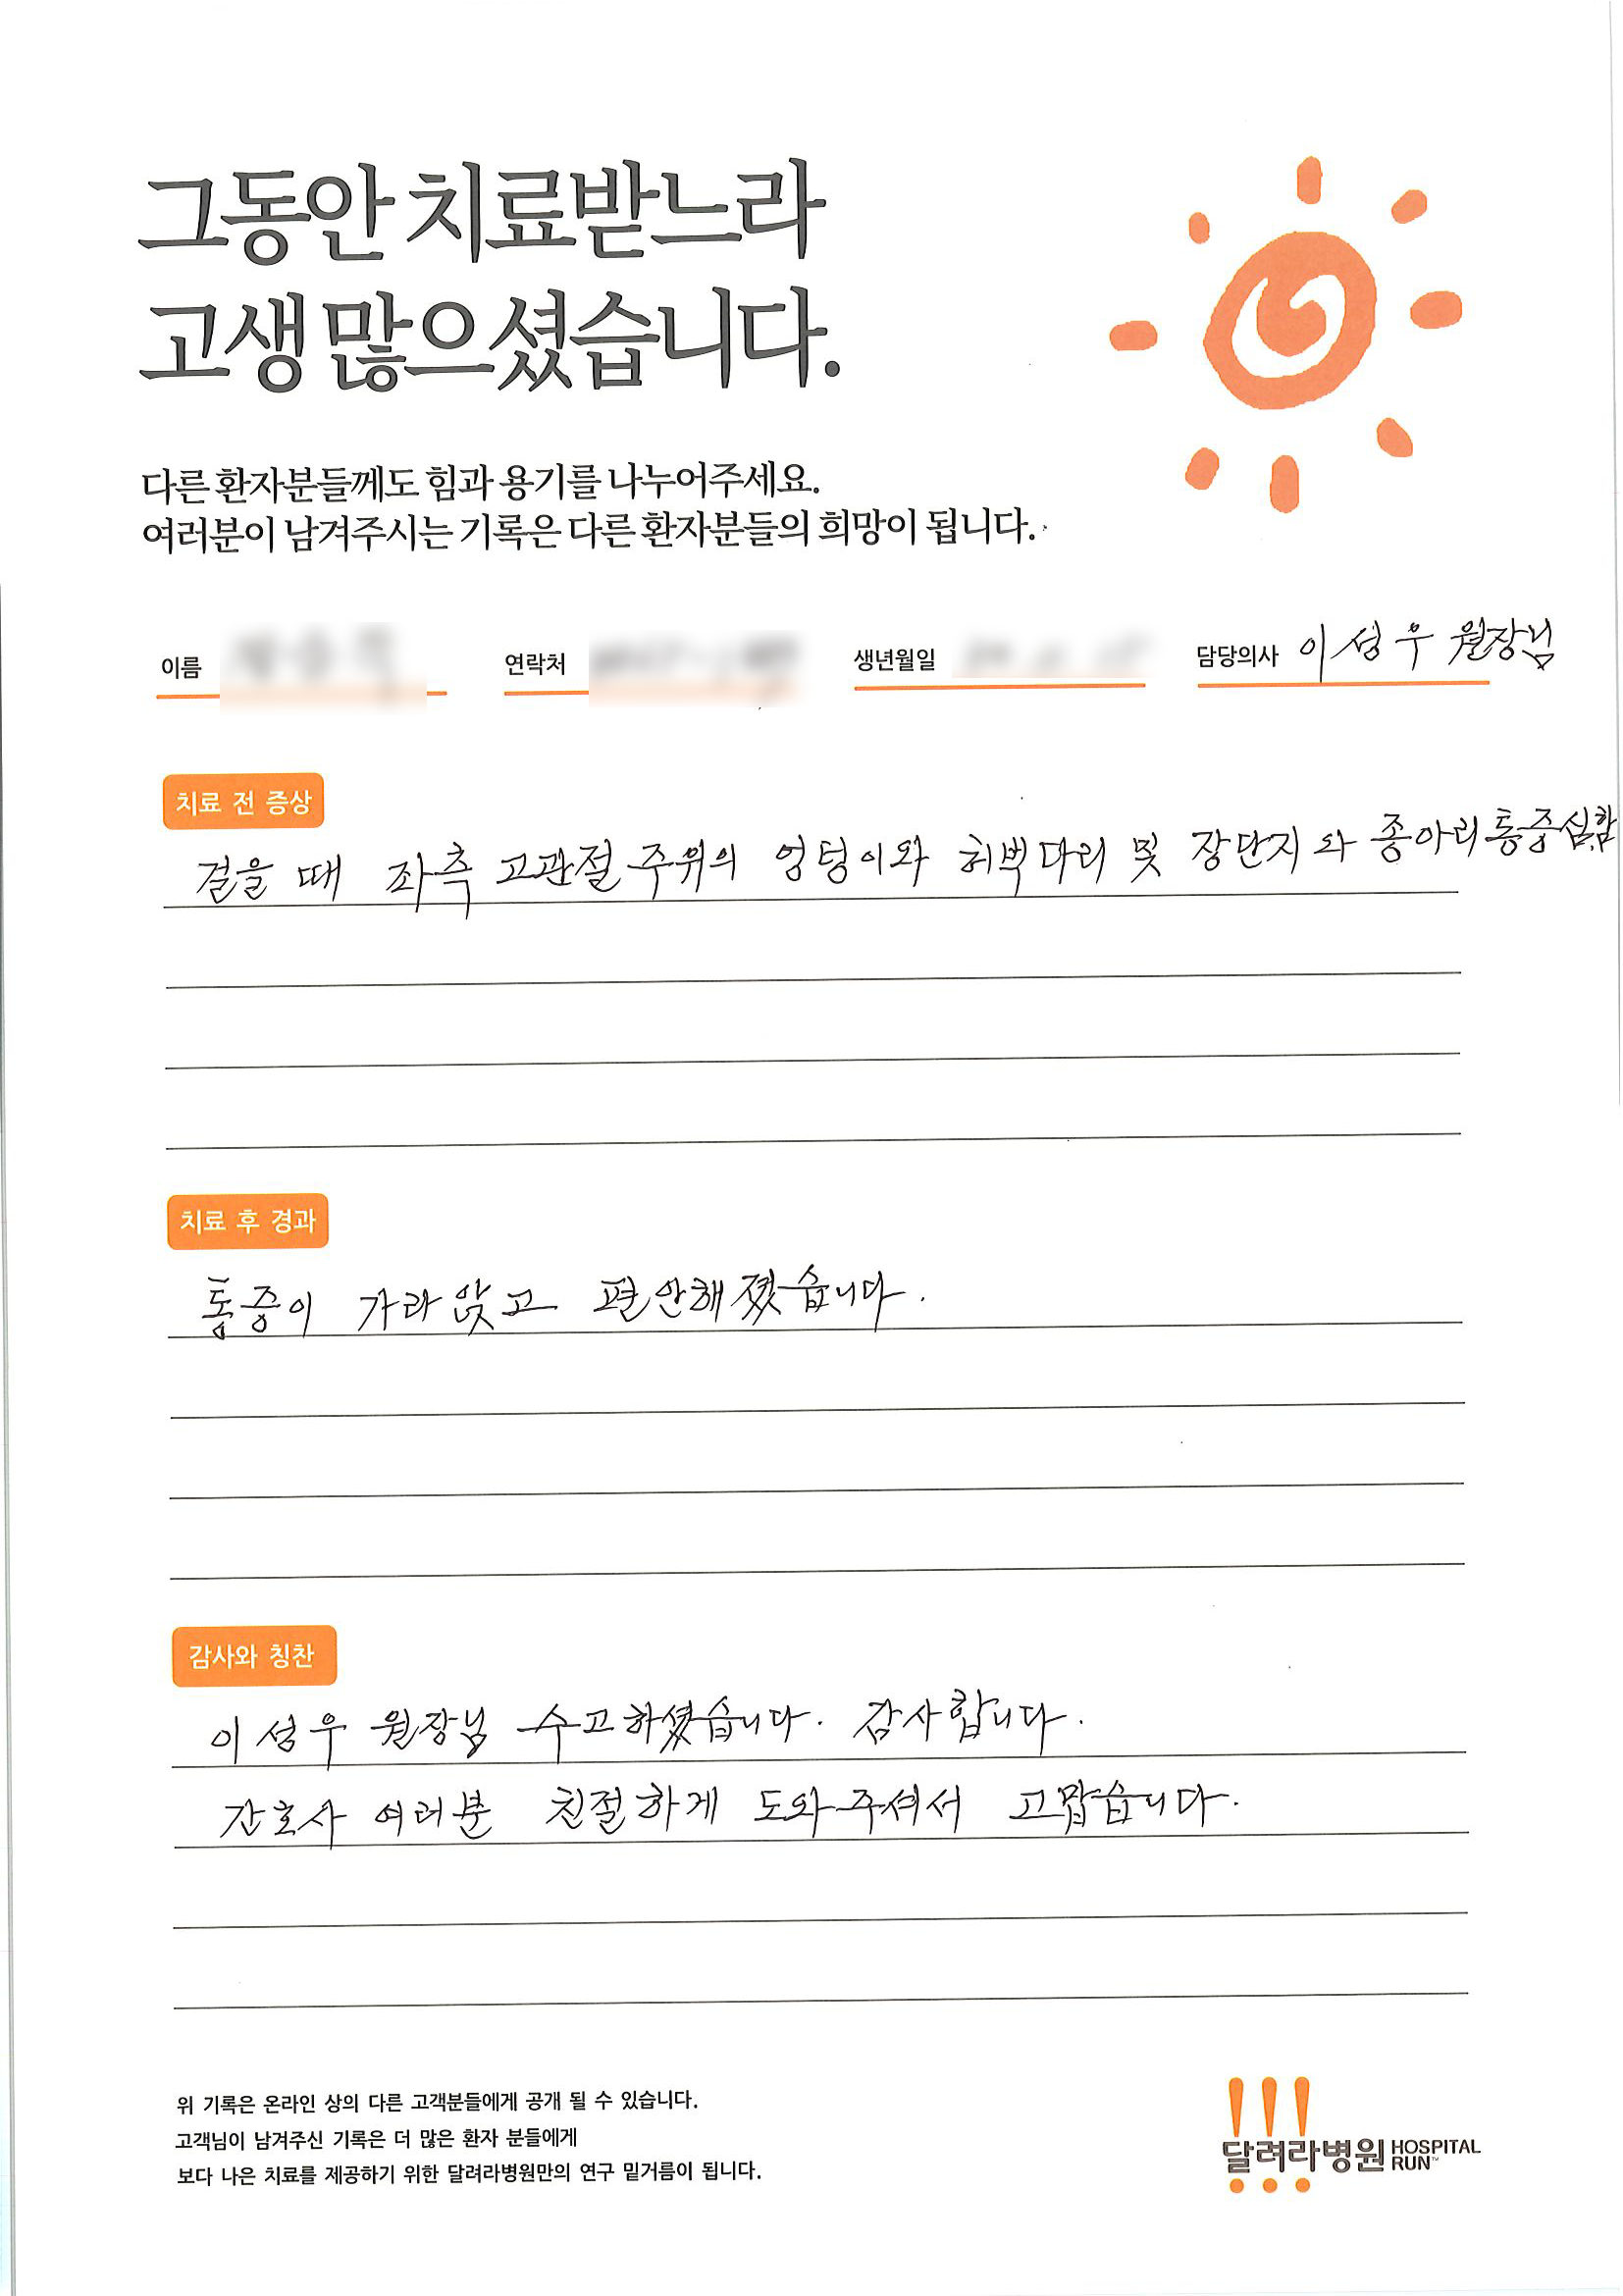 그동안 치료받느라
고생 많으셨습니다.
다른 환자분들께도 힘과 용기를 나누어주세요.
여러분이 남겨주시는 기록은 다른 환자분들의 희망이 됩니다.
이름 연락처 생년월일 담당의사 이성우 원장님
치료 전 증상
걸을 때 좌측 고관절 주위의 엉덩이와 허벅다리 및 장단지와 종아리 통증심함
치료 후 경과
통증이 가라앉고 편안해졌습니다.
감사와 칭찬
이성우 원장님 수고하셨습니다. 감사합니다.
간호사 여러분 친절하게 도와주셔서 고맙습니다.
위 기록은 온라인 상의 다른 고객분들에게 공개 될 수 있습니다.
고객님이 남겨주신 기록은 더 많은 환자 분들에게
보다 나은 치료를 제공하기 위한 달려라병원만의 연구 밑거름이 됩니다.
달려라병원 HOSPITAL RUN™